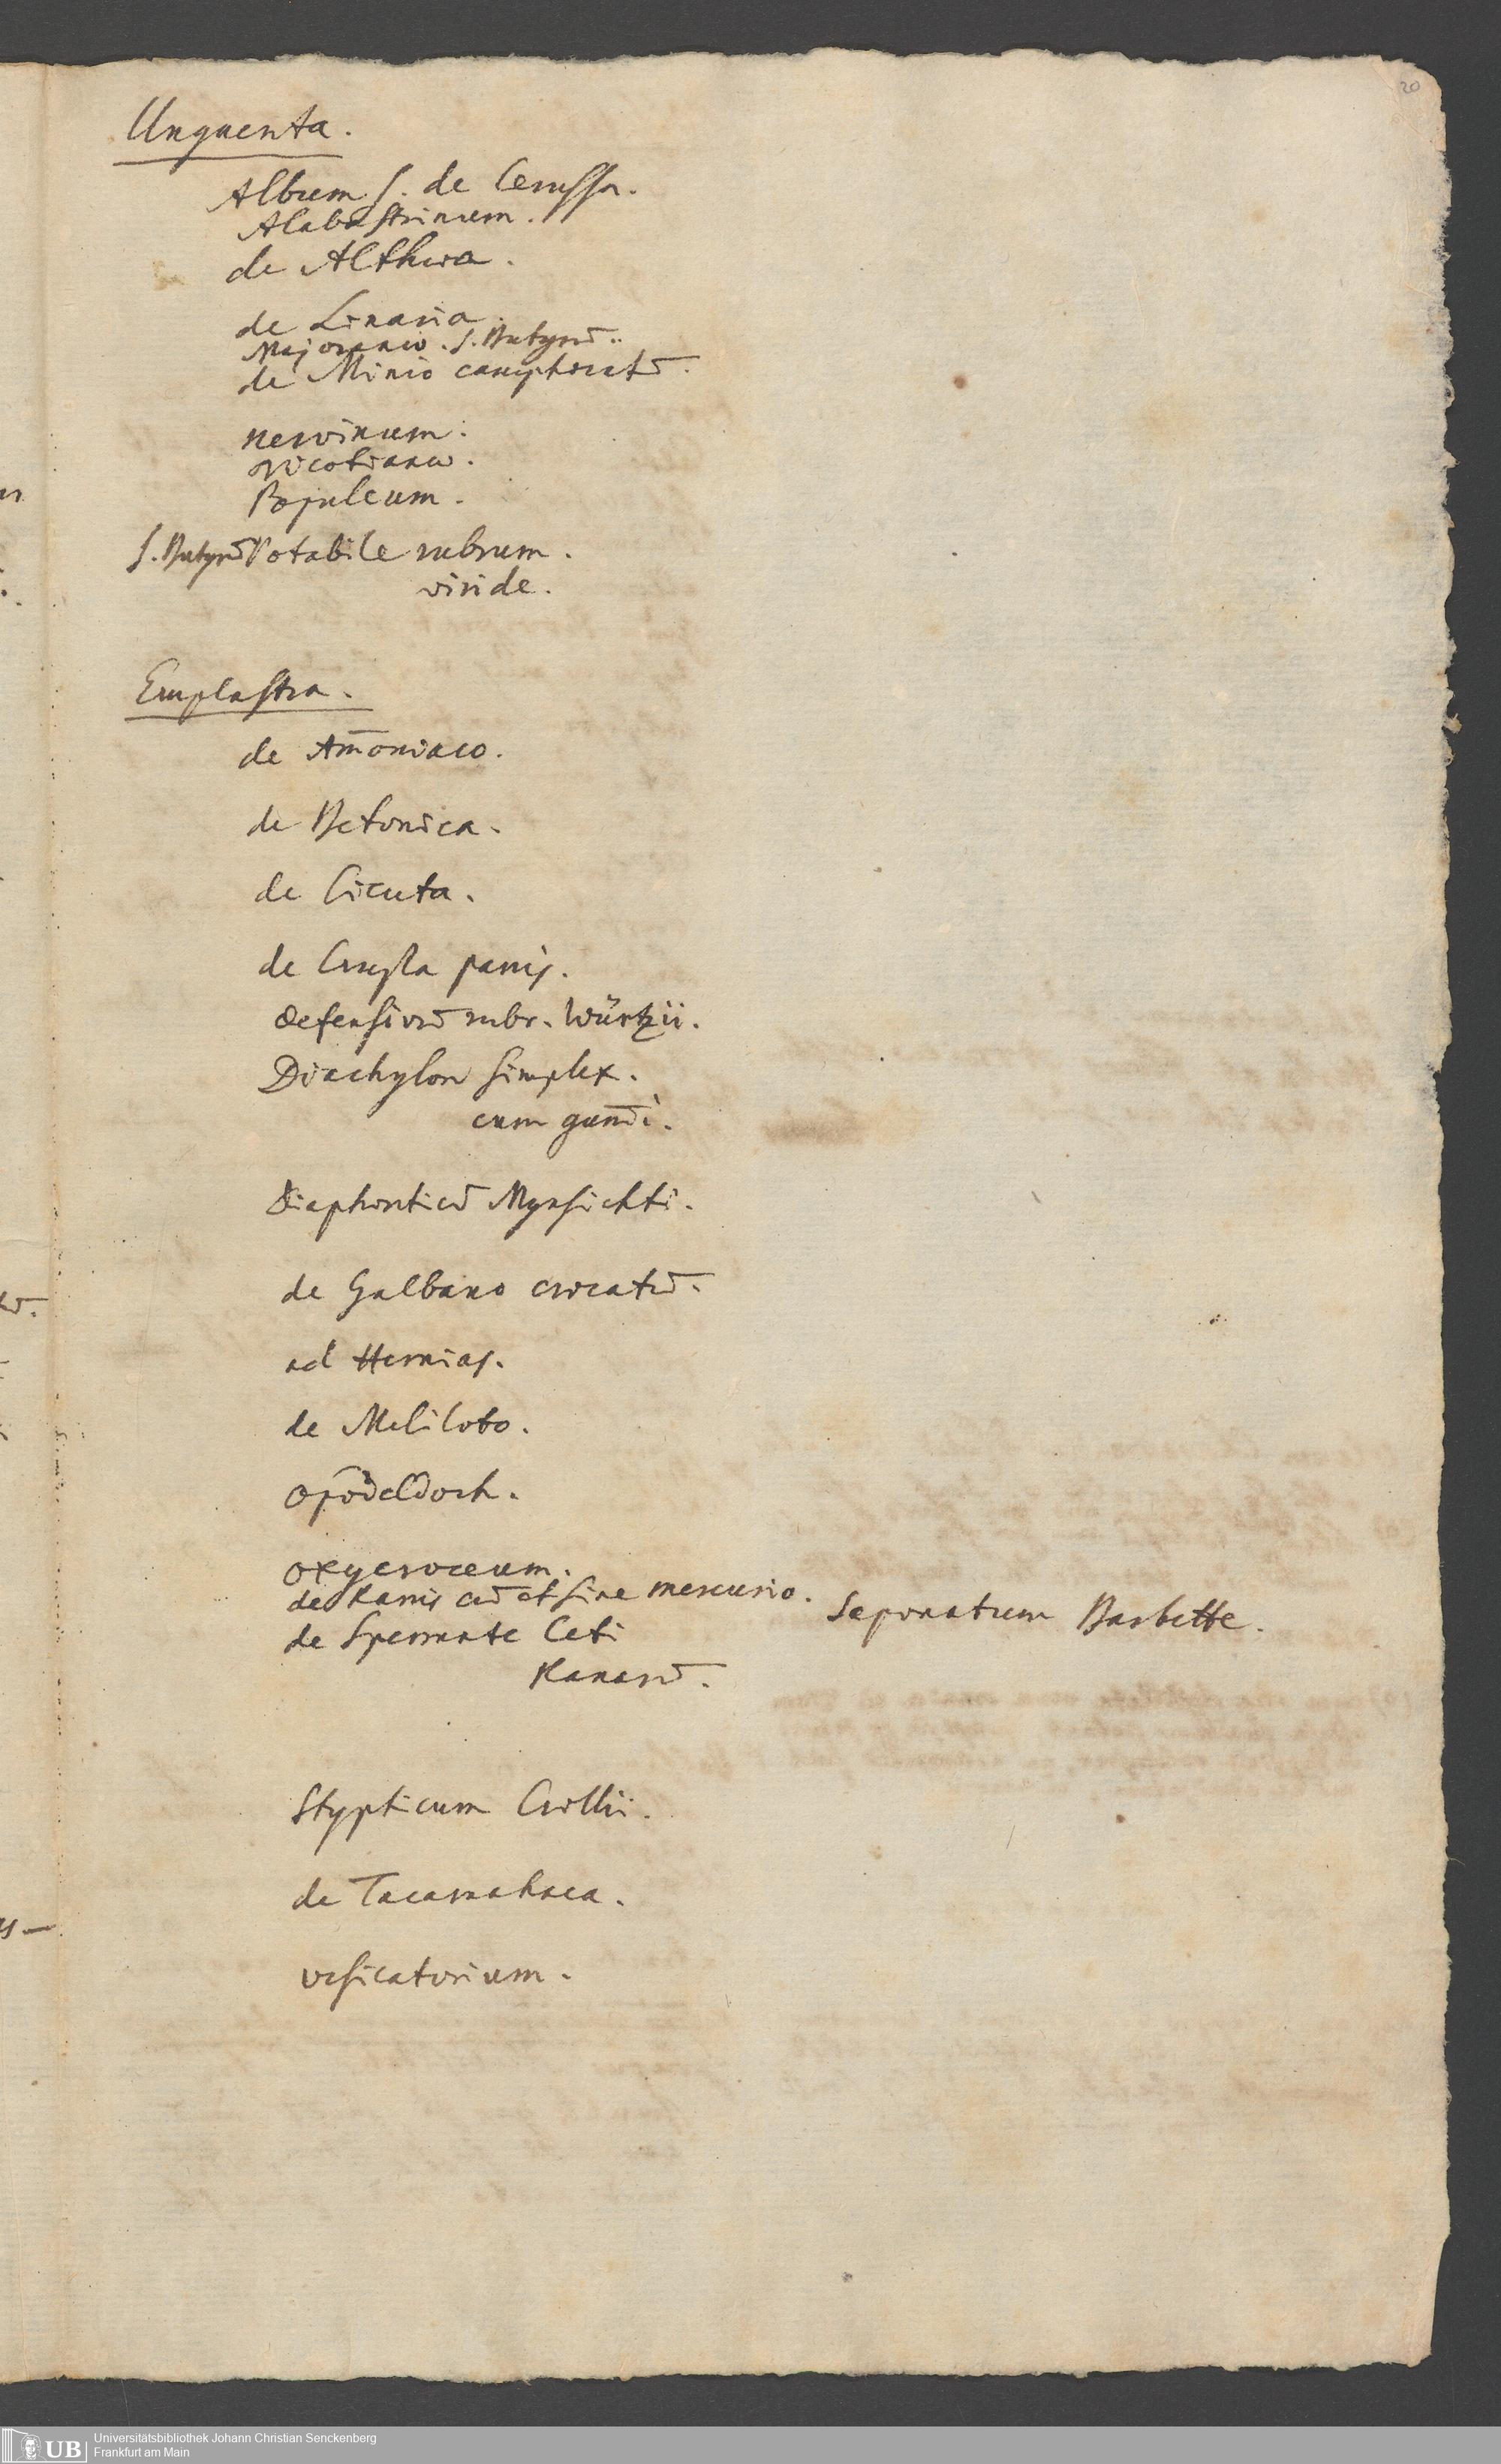 20
Unguenta.
Album s. de Cerussa.
Alabastrinum.
de Althæa.
de Linaria.
Majoranæ. s. Butyrū.
de Minio camphoratū.
nervinum.
Nicotianæ.
Populeum.
s. Butyrū Potabile rubrum.
viride.
Emplastra.
de Am̄oniaco.
de Betonica.
de Cicuta.
de Crusta panis.
defensivū rubr. Würtzii.
Diachylon simplex.
cum gum̄i.
Diaphoreticū Mynsichti.
de Galbano crocatū.
ad Hernias.
de Meliloto.
opodeldoch.
oxycroceum.
de Ranis cū et sine mercurio.
Saponatum Barbette.
de Spermate Ceti
Ranarū.
Stypticum Crollii.
de Tacamahaca.
vesicatorium.
Universitätsbibliothek Johann Christian Senckenberg
Frankfurt am Main
UB